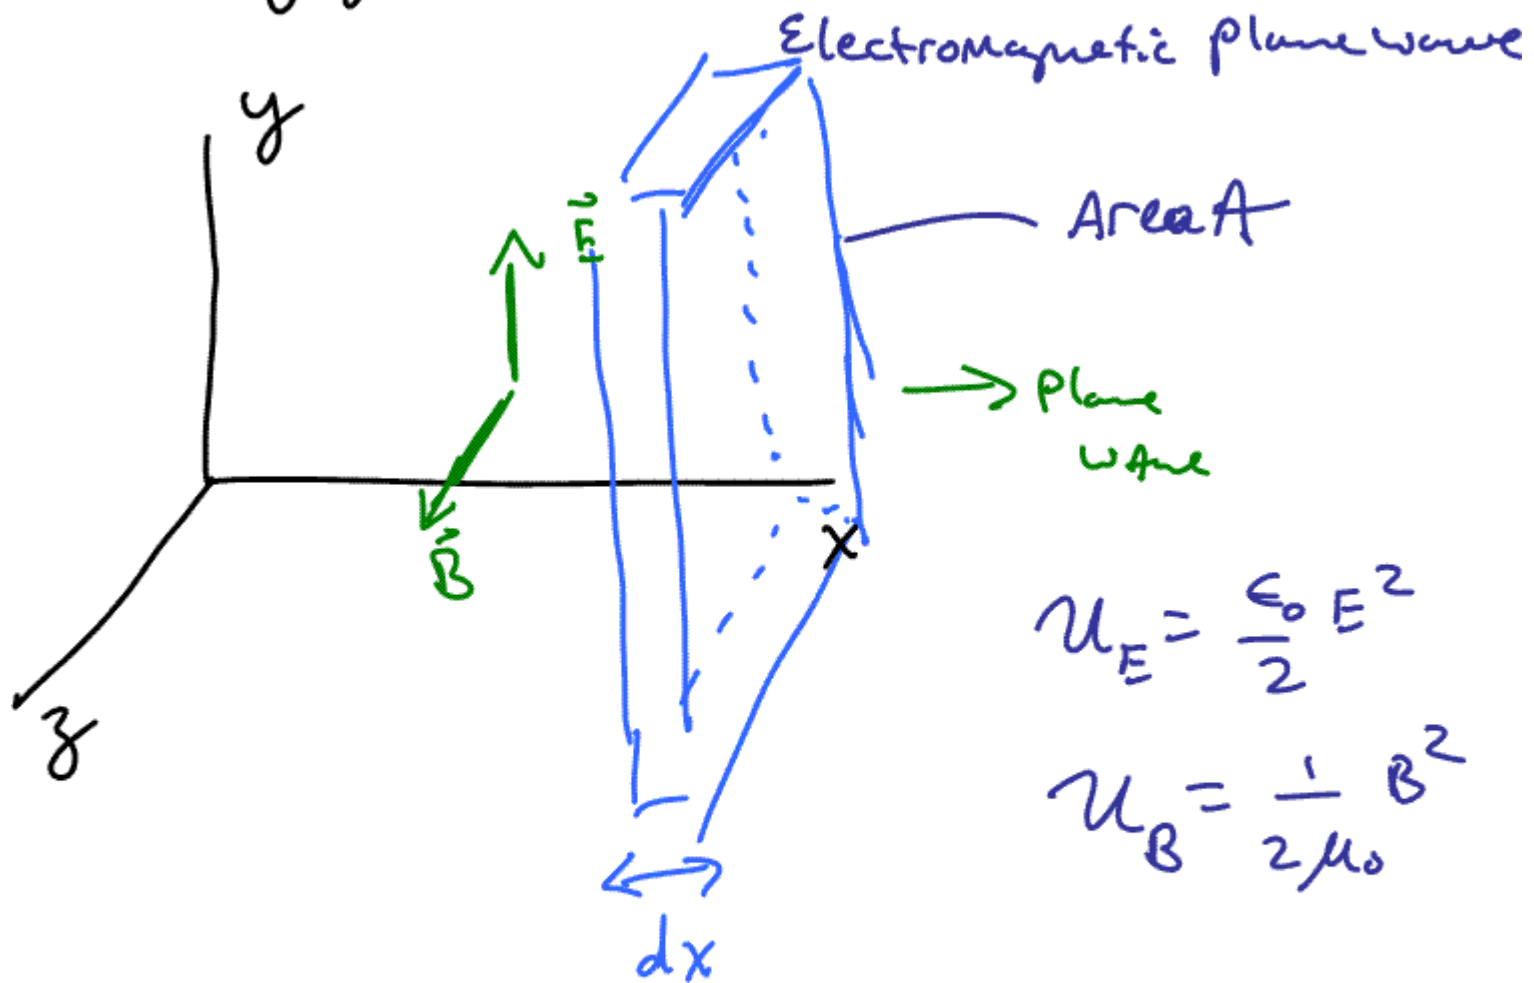 Electromagnetic plane wave
y
E⃗
Area A
Plane
wave
x
B⃗
z
u_E = ε₀/2 E²
u_B = 1/(2μ₀) B²
dx